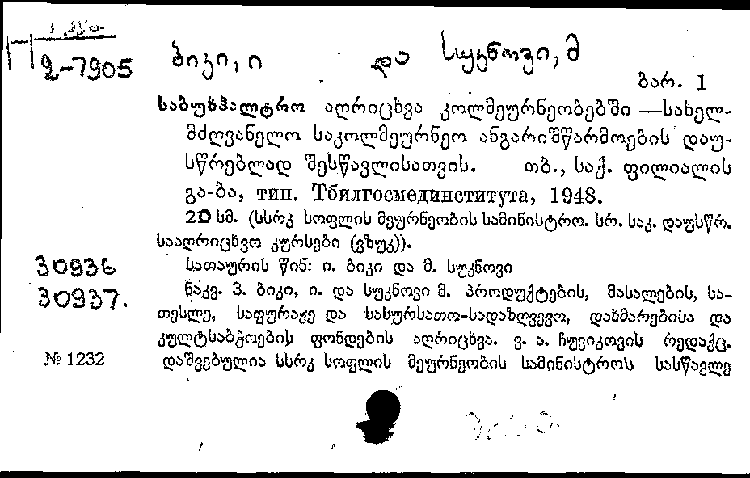 2-7905 ბიკი, ი და სუკნოვი, მ
ბარ. 1
საბუხჰალტრო აღრიცხვა კოლმეურნეობებში — სახელ-
მძღვანელო საკოლმეურნეო ანგარიშწარმოების დაუ-
სწრებლად შესწავლისათვის. თბ., საქ. ფილიალის
გა-ბა, тип. Тбилгосмединститута, 1948.
20 სმ. (სსრკ სოფლის მეურნეობის სამინისტრო. სრ. საკ. დაუსწრ.
სააღრიცხვო კურსები (ვზუკ)).
30936 სათაურის წინ: ი. ბიკი და მ. სუკნოვი
30937. ნაკვ. 3. ბიკი, ი. და სუკნოვი მ. პროდუქტების, მასალების, სა-
თესლე, საფურაჟე და სასურსათო-სადაზღვევო, დახმარებისა და
კულტსაბჭოების ფონდების აღრიცხვა. ვ. ა. ჩუვიკოვის რედაქც.
№ 1232 დაშვებულია სსრკ სოფლის მეურნეობის სამინისტროს სასწავლე